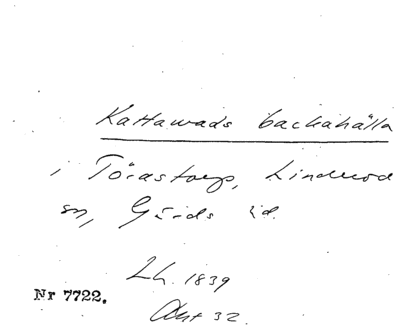 Kattawads backahälla
i Törastorp, Linderod
sn, Gärds hd.
Lh. 1839
Akt 32.
Nr 7722.